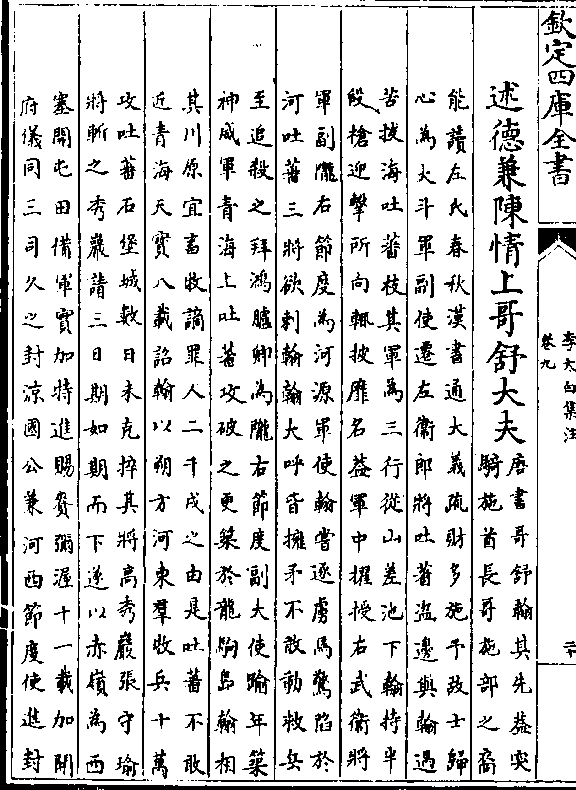 欽定四庫全書
李太白集注
卷九
二十
述德兼陳情上哥舒大夫
唐書哥舒翰其先葢突
騎施酋長哥施部之裔
能讀左氏春秋漢書通大義疏財多施予故士歸
心為大斗軍副使遷左衛郎將吐蕃盗邊與翰遇
苦拔海吐蕃枝其軍為三行從山差池下翰持半
段槍迎擊所向輒披靡名葢軍中擢授右武衛將
軍副隴右節度為河源軍使翰嘗逐虜馬驚陷於
河吐蕃三將欲刺翰翰大呼皆擁矛不敢動救兵
至追殺之拜鴻臚卿為隴右節度副大使踰年築
神威軍青海上吐蕃攻破之更築於龍駒島翰相
其川原宜畜牧謫罪人二千戍之由是吐蕃不敢
近青海天寶八載詔翰以朔方河東羣牧兵十萬
攻吐蕃石堡城數日未克捽其將高秀巖張守瑜
將斬之秀巖請三日期如期而下遂以赤嶺為西
塞開屯田備軍實加特進賜賚彌渥十一載加開
府儀同三司久之封涼國公兼河西節度使進封